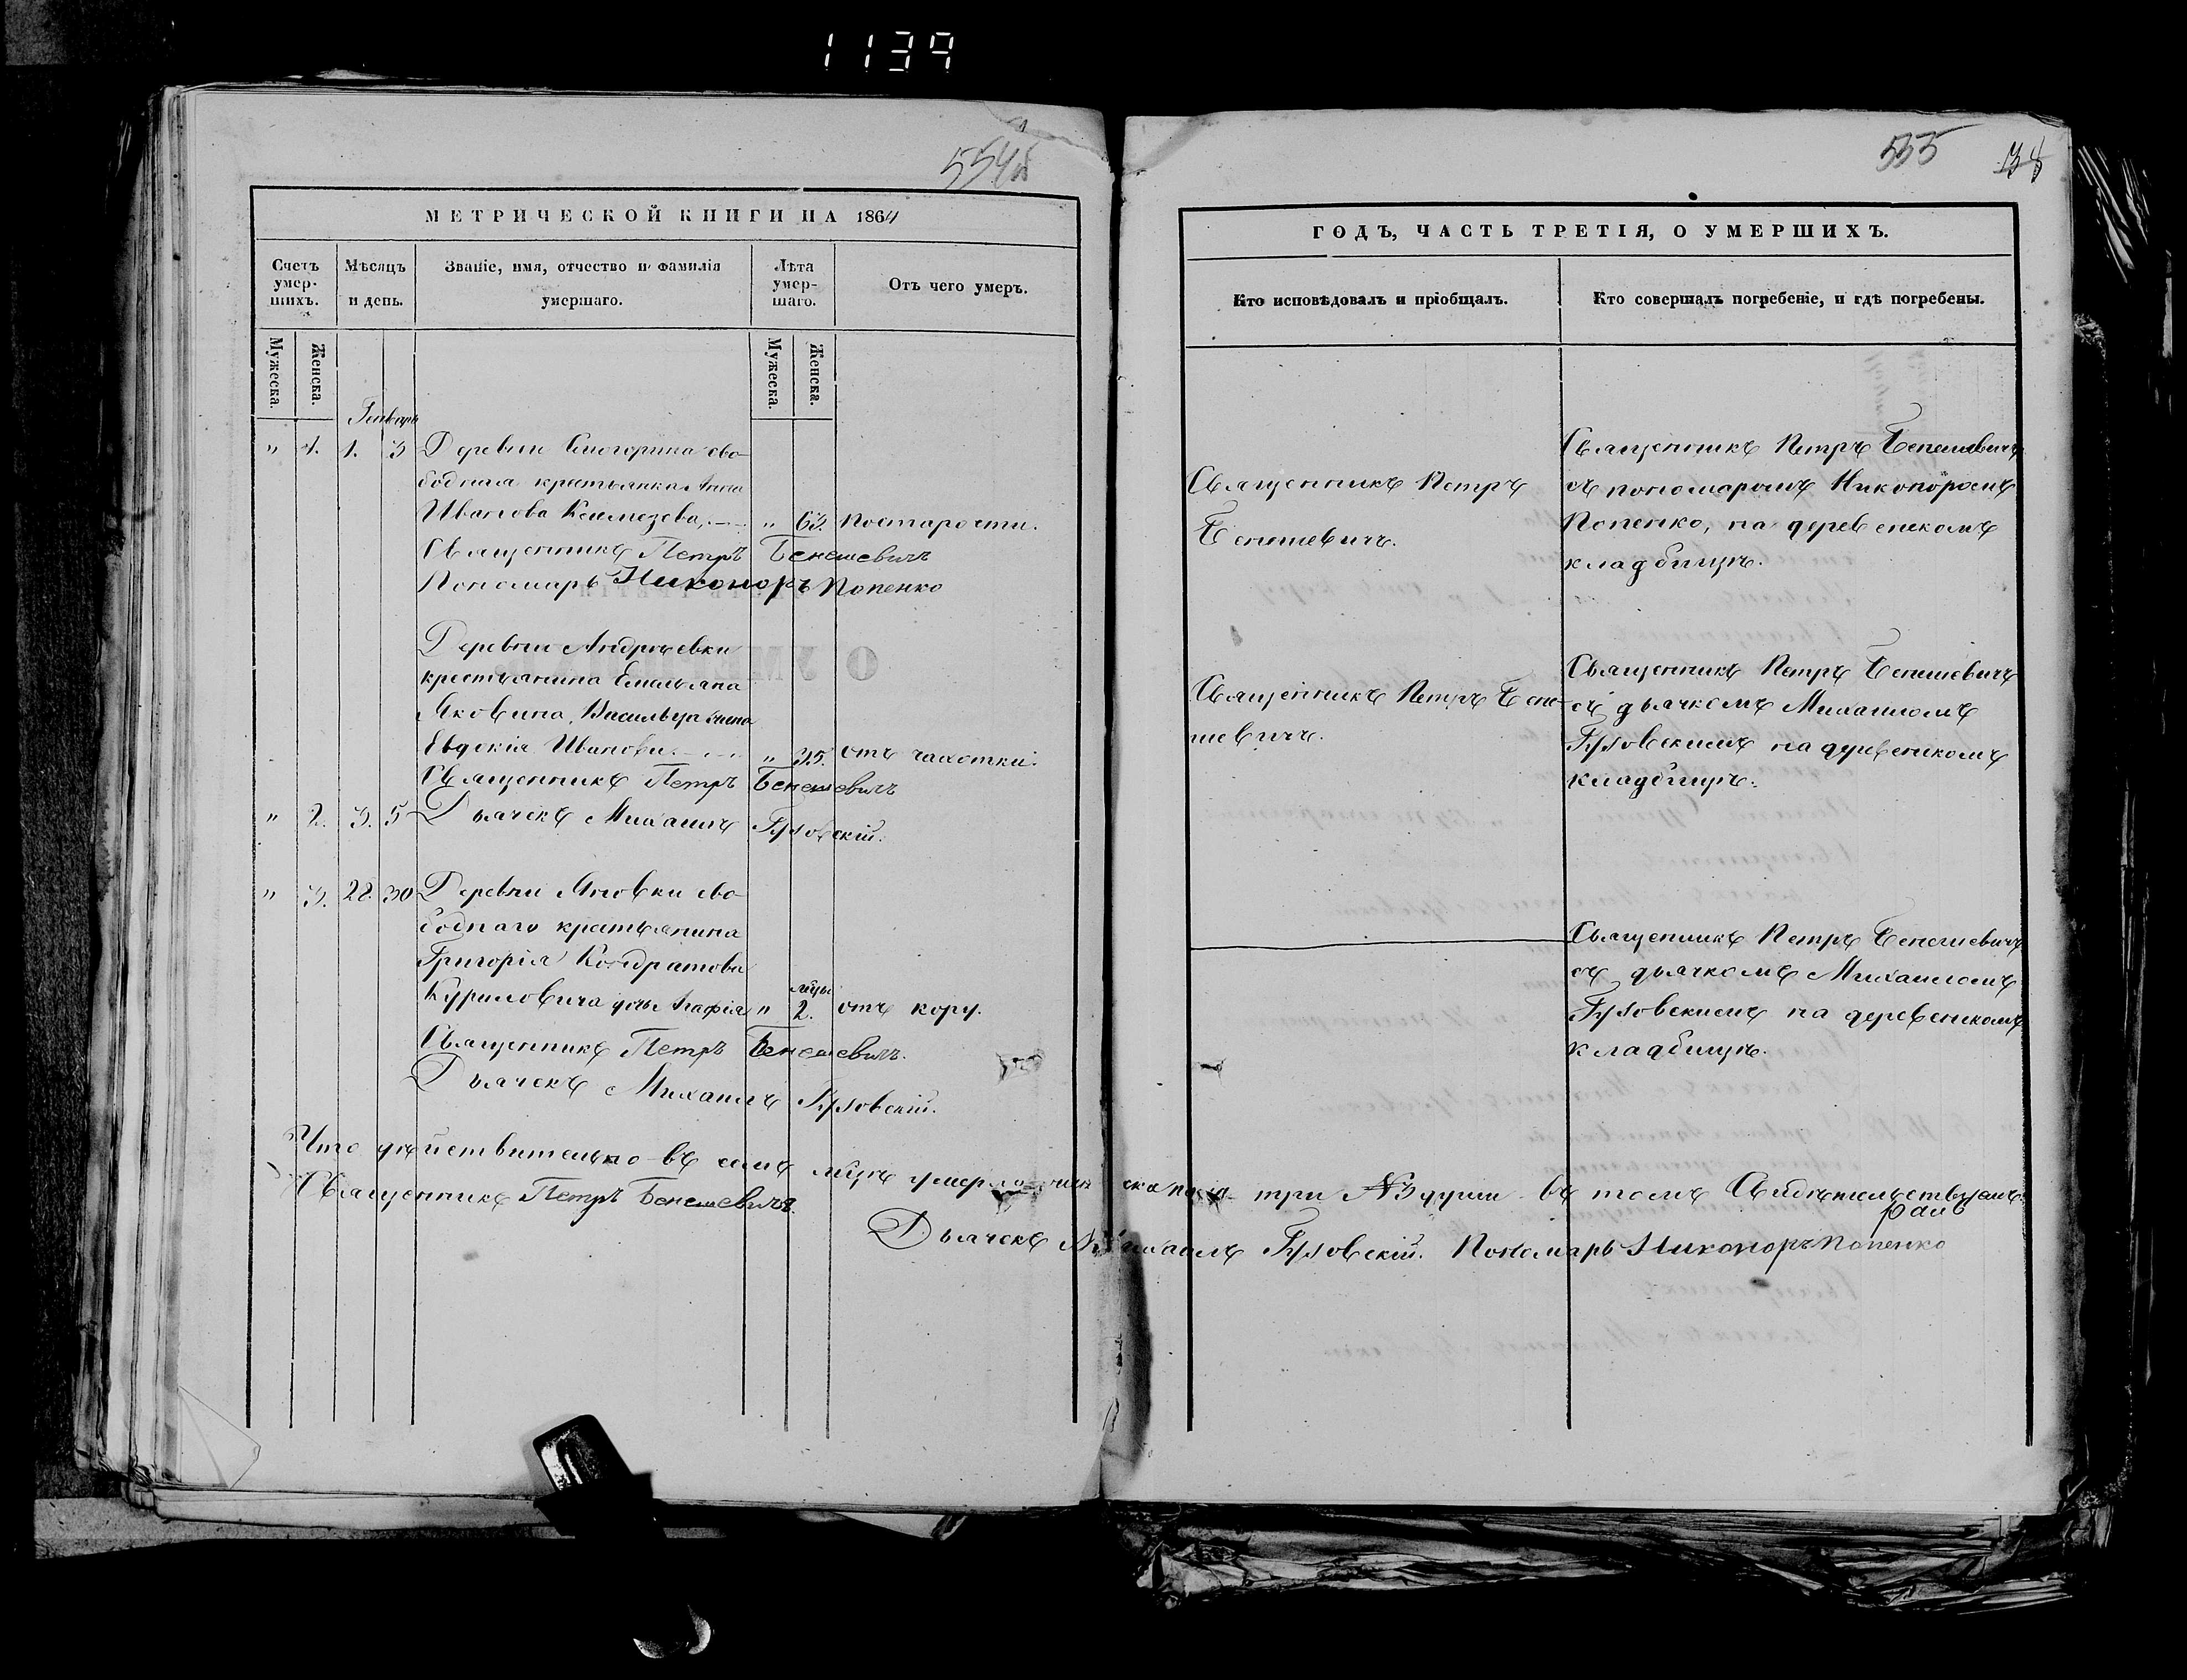 1139
554об
МЕТРИЧЕСКОЙ КНИГИ НА 1864
Счетъ умер-шихъ.
Мѣсяцъ и день.
Званіе, имя, отчество и фамилія умершаго.
Лѣта умер-шаго.
Отъ чего умеръ.
Мужеска.
Женска.
Мужеска.
Женска.
Генварь
" 1. 1. 3 Деревни
бодная крестьянка Анна
Иванова " 63. по старости.
Священникъ Петръ Бенешевичъ
Пономарь Никоноръ Попенко
Деревни Андреевки
крестьянина Емельяна
Яковина, Васильца жена
Евдокія Иванова " 35. отъ чахотки.
Священникъ Петръ Бенешевичъ
" 2. 3. 5 Дьячекъ Михаилъ Гузовскій.
" 3. 28. 30 Деревни Яновки сво-
боднаго крестьянина
Григорія Кондратова
мцы
Куриловича дочь Агафія " 2. отъ кору.
Священникъ Петръ Бенешевичъ.
Дьячекъ Михаилъ Гузовскій.
Что дѣйствительно въ семъ мцѣ умерло женска пола три №3 души въ томъ Свидѣтельствуемъ:
Священникъ Петръ Бенешевичъ
Дьячекъ Михаилъ Гузовскій. Пономарь Никоноръ Попенко
555
ГОДЪ, ЧАСТЬ ТРЕТІЯ, О УМЕРШИХЪ.
Кто исповѣдовалъ и пріобщалъ.
Кто совершалъ погребеніе, и гдѣ погребены.
Священникъ Петръ
Бенешевичъ.
Священникъ Петръ Бенешевичъ
съ пономаромъ Никоноромъ
Попенко, на деревенскомъ
кладбищѣ.
Священникъ Петръ Бене-
шевичъ.
Священникъ Петръ Бенешевичъ
съ дьячкомъ Михаиломъ
Гузовскимъ на деревенскомъ
кладбищѣ.
Священникъ Петръ Бенешевичъ
съ дьячкомъ Михаиломъ
Гузовскимъ на деревенскомъ
кладбищѣ.